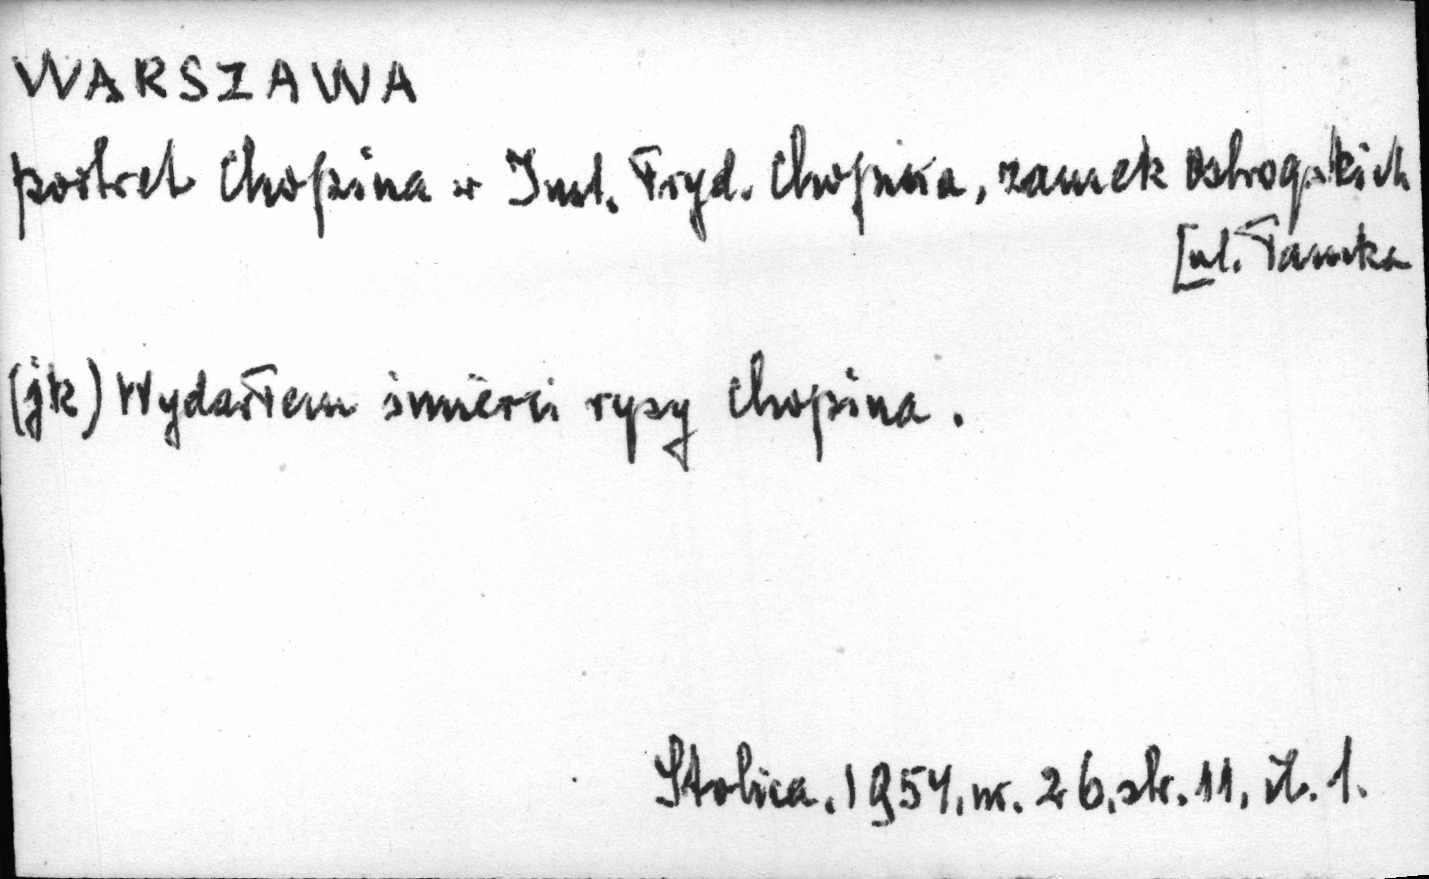 WARSZAWA
portret Chopina w Inst. Fryd. Chopina, zamek Ostrogskich
[ul. Tamka
(jk) Wydarłem śmierci rysy Chopina.
Stolica. 1954. nr. 26. str. 11, il. 1.